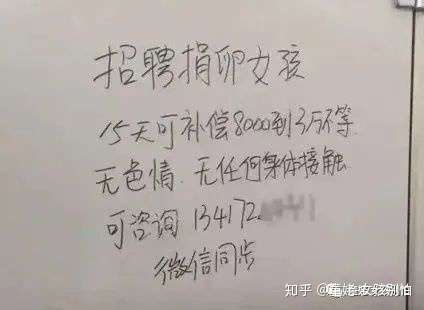 招聘捐卵女孩
15天可补偿8000到3万不等
无色情.无任何身体接触
可咨询 134172
微信同步
知乎
女孩别怕